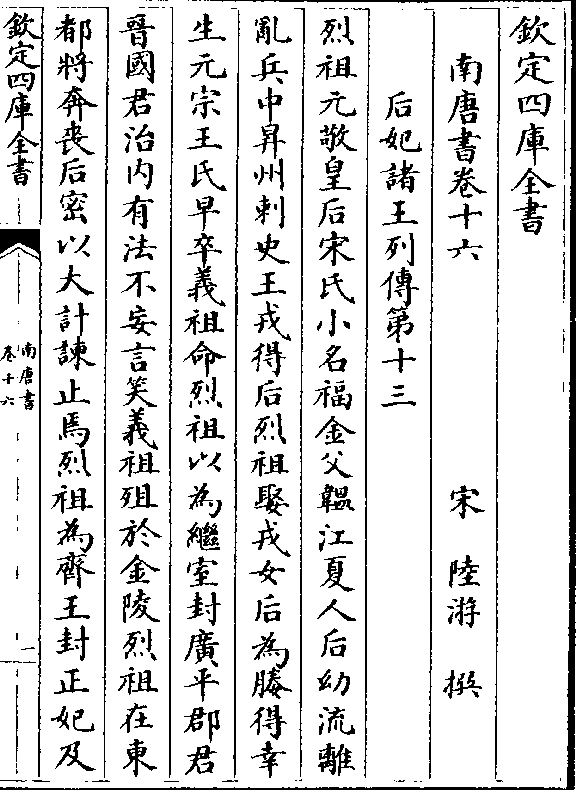 欽定四庫全書
南唐書卷十六
宋 陸游 撰
后妃諸王列傳第十三
烈祖元敬皇后宋氏小名福金父韞江夏人后幼流離
亂兵中昇州刺史王戎得后烈祖娶戎女后為媵得幸
生元宗王氏早卒義祖命烈祖以為繼室封廣平郡君
晉國君治内有法不妄言笑義祖殂於金陵烈祖在東
都將奔喪后密以大計諫止焉烈祖為齊王封正妃及
欽定四庫全書
南唐書
卷十六
一